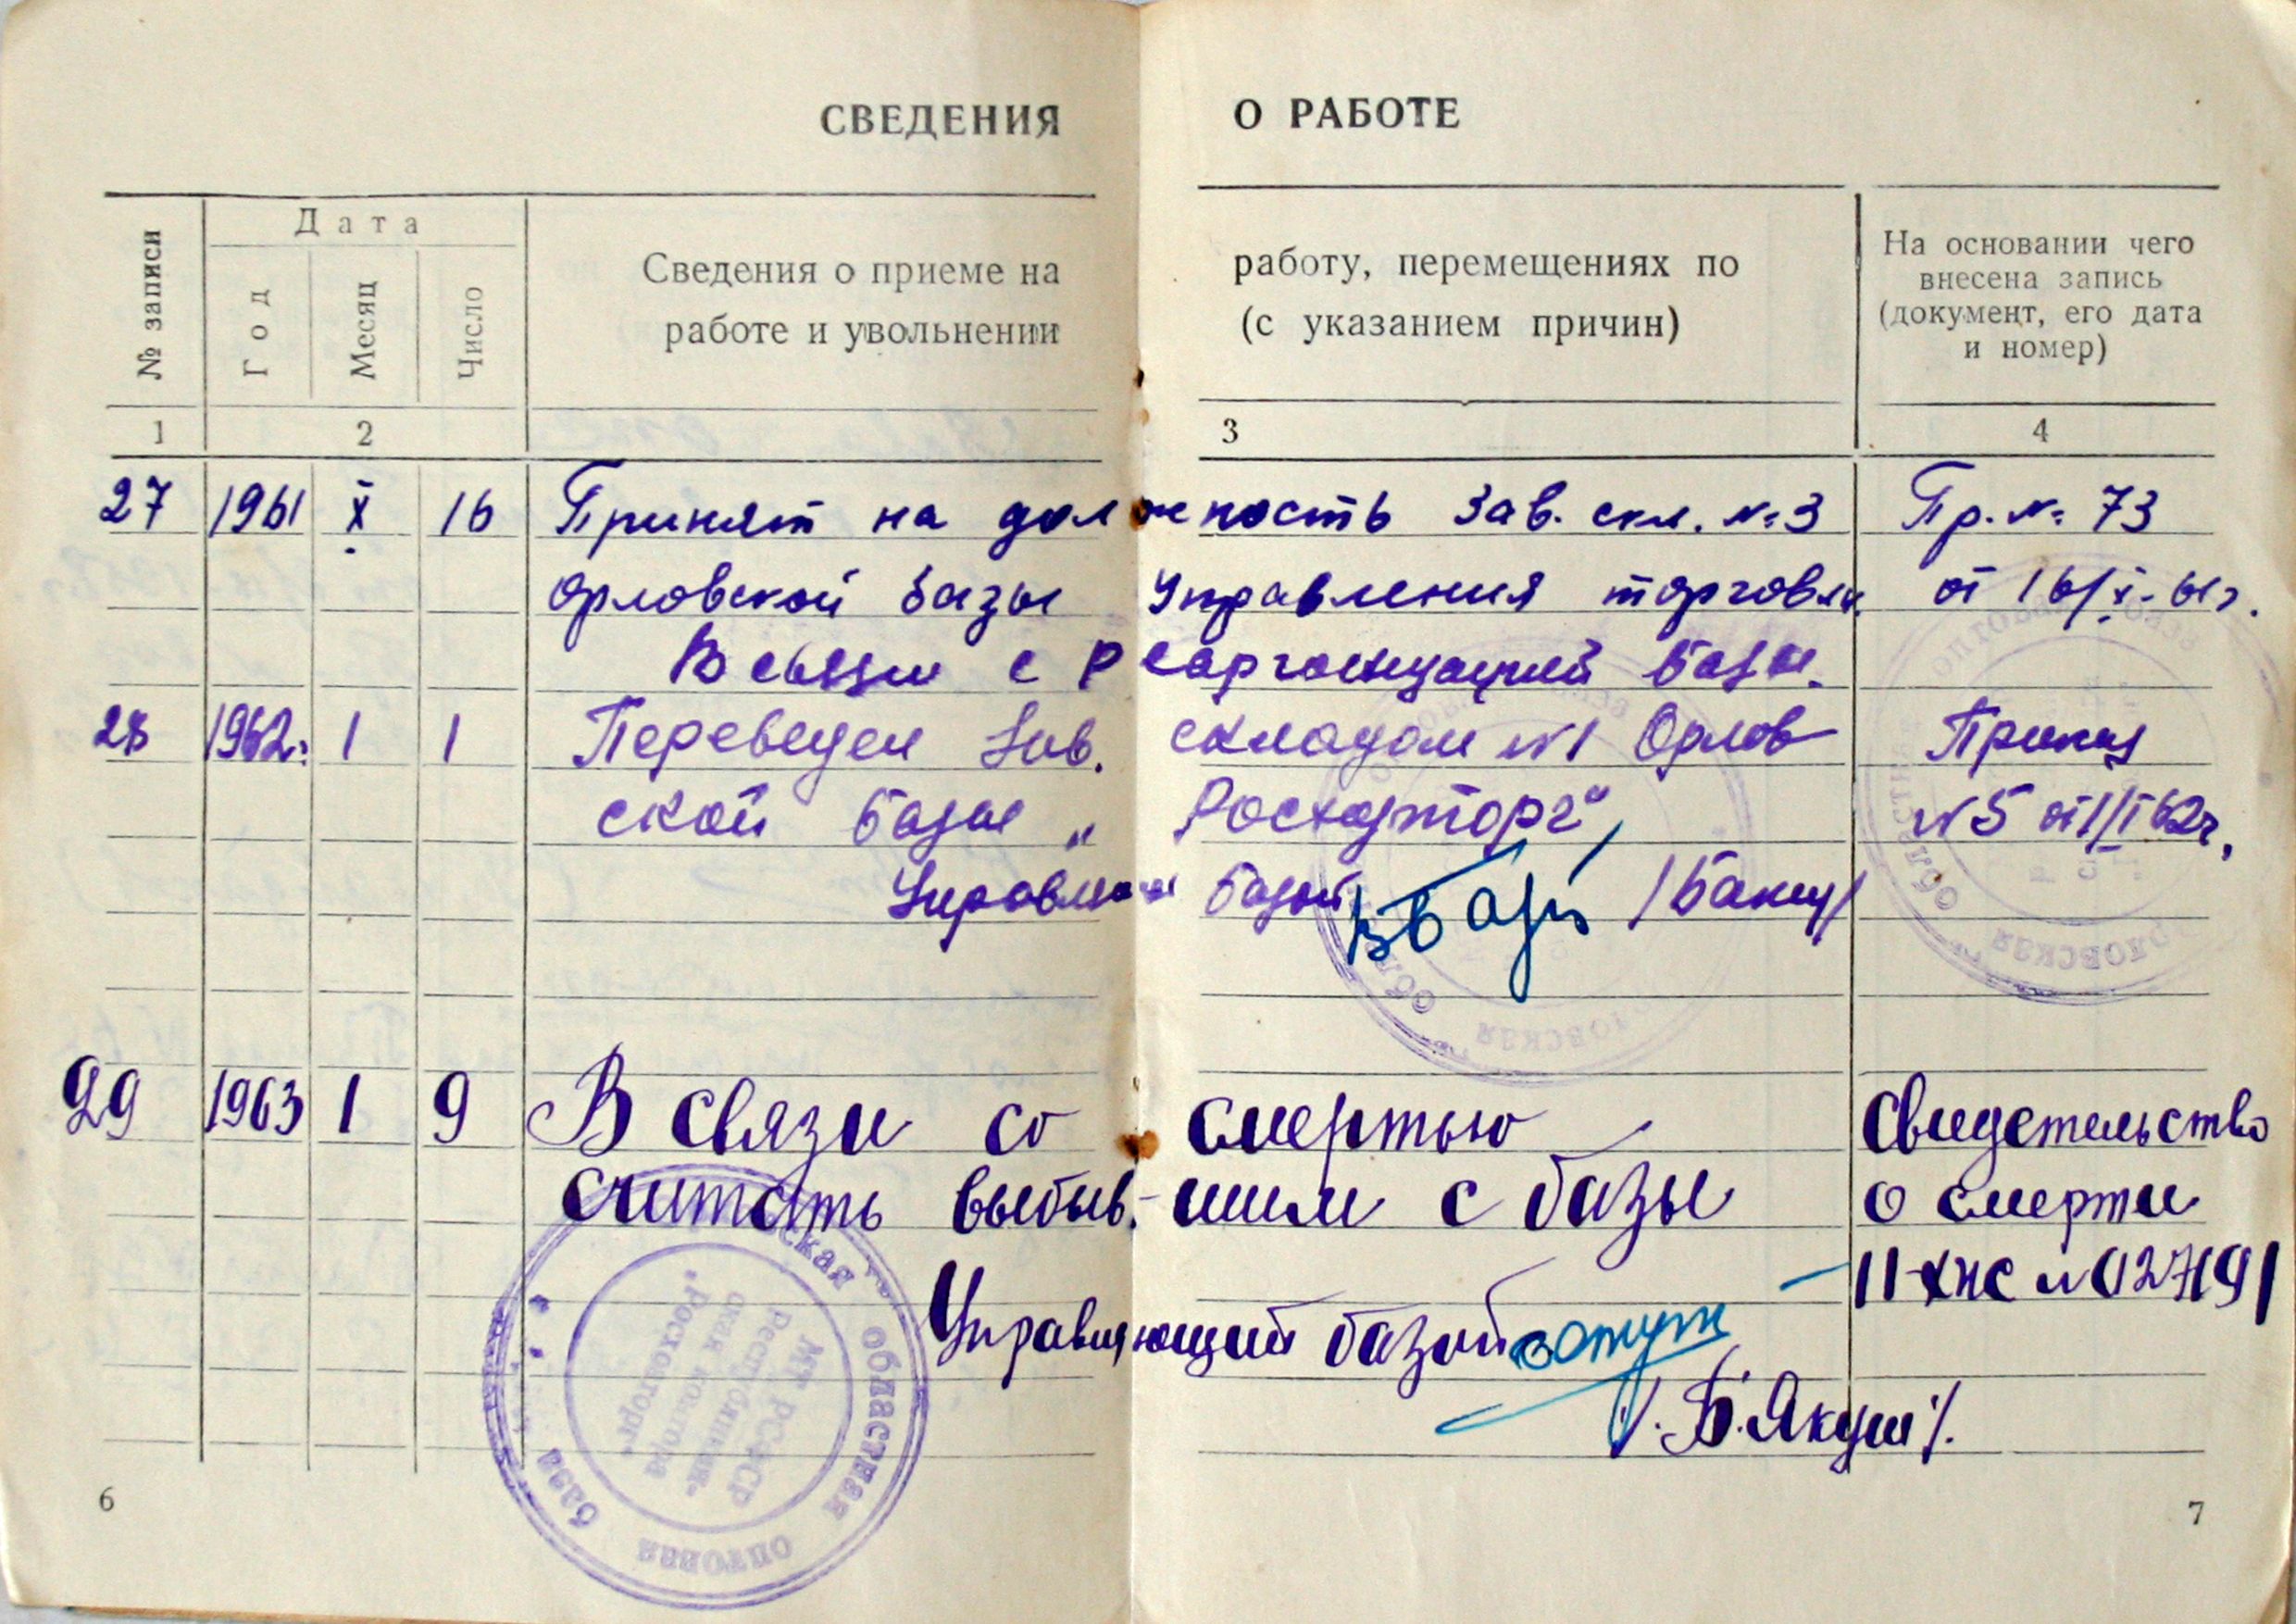 СВЕДЕНИЯ О РАБОТЕ
№ записи
Дата
Год
Месяц
Число
Сведения о приеме на работу, перемещениях по
работе и увольнении (с указанием причин)
На основании чего
внесена запись
(документ, его дата
и номер)
1 2 3 4
27 1961 X 16 Принят на должность Зав. скл. №3 Пр. № 73
Орловской базы Управления торговли. от 16/X-61г.
В связи с реорганизацией базы.
28 1962г. 1 1 Переведен Зав. складом №1 Орлов Приказ
ской базы „Росхозторг“ №5 от 1/I 62г.
базой
29 1963 1 9 В связи со смертью Свидетельство
считать выбыв-шим с базы о смерти
Управляющий базой
/.Б.Якуш/.
областная оптовая база
МТ РСФСР
Республикан-
ская контора
"Росхозторг"
6
7